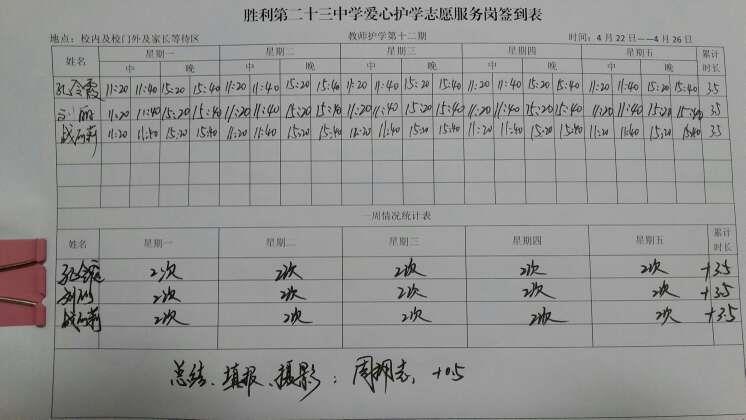 胜利第二十三中学爱心护学志愿服务岗签到表
地点：校内及校门外及家长等待区 教师护学第十二期 时间：4月22日——4月26日
姓名 星期一 星期二 星期三 星期四 星期五 累计时长
中 晚 中 晚 中 晚 中 晚 中 晚
11:20 11:40 15:20 15:40 11:20 11:40 15:20 15:40 11:20 11:40 15:20 15:40 11:20 11:40 15:20 15:40 11:20 11:40 15:20 15:40 3.5
11:20 11:40 15:20 15:40 11:20 11:40 15:20 15:40 11:20 11:40 15:20 15:40 11:20 11:40 15:20 15:40 11:20 11:40 15:20 15:40 3.5
11:20 11:40 15:20 15:40 11:20 11:40 15:20 15:40 12:20 11:40 15:20 15:40 11:20 11:40 15:20 15:40 11:20 11:40 15:20 15:40 3.5
一周情况统计表
姓名 星期一 星期二 星期三 星期四 星期五 累计时长
2次 2次 2次 2次 2次 +3.5
2次 2次 2次 2次 2次 +3.5
2次 2次 2次 2次 2次 +3.5
总结、填报、摄影：周明志，+0.5